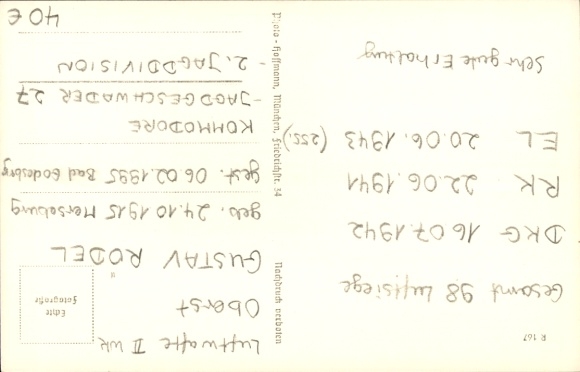 R 167
Gesamt 98 Luftsiege
DKG 16.07.1942
RK 22.06.1941
EL 20.06.1943 (255.)
Sehr gute Erhaltung
Nachdruck verboten
Photo-Hoffmann, München, Friedrichstr. 34
Luftwaffe II WK
Oberst
Echte
Fotografie
GUSTAV RÖDEL
geb. 24.10.1915 Merseburg
gest. 06.02.1995 Bad Godesberg
KOMMODORE
-JAGDGESCHWADER 27
- 2. JAGDDIVISION
40 €